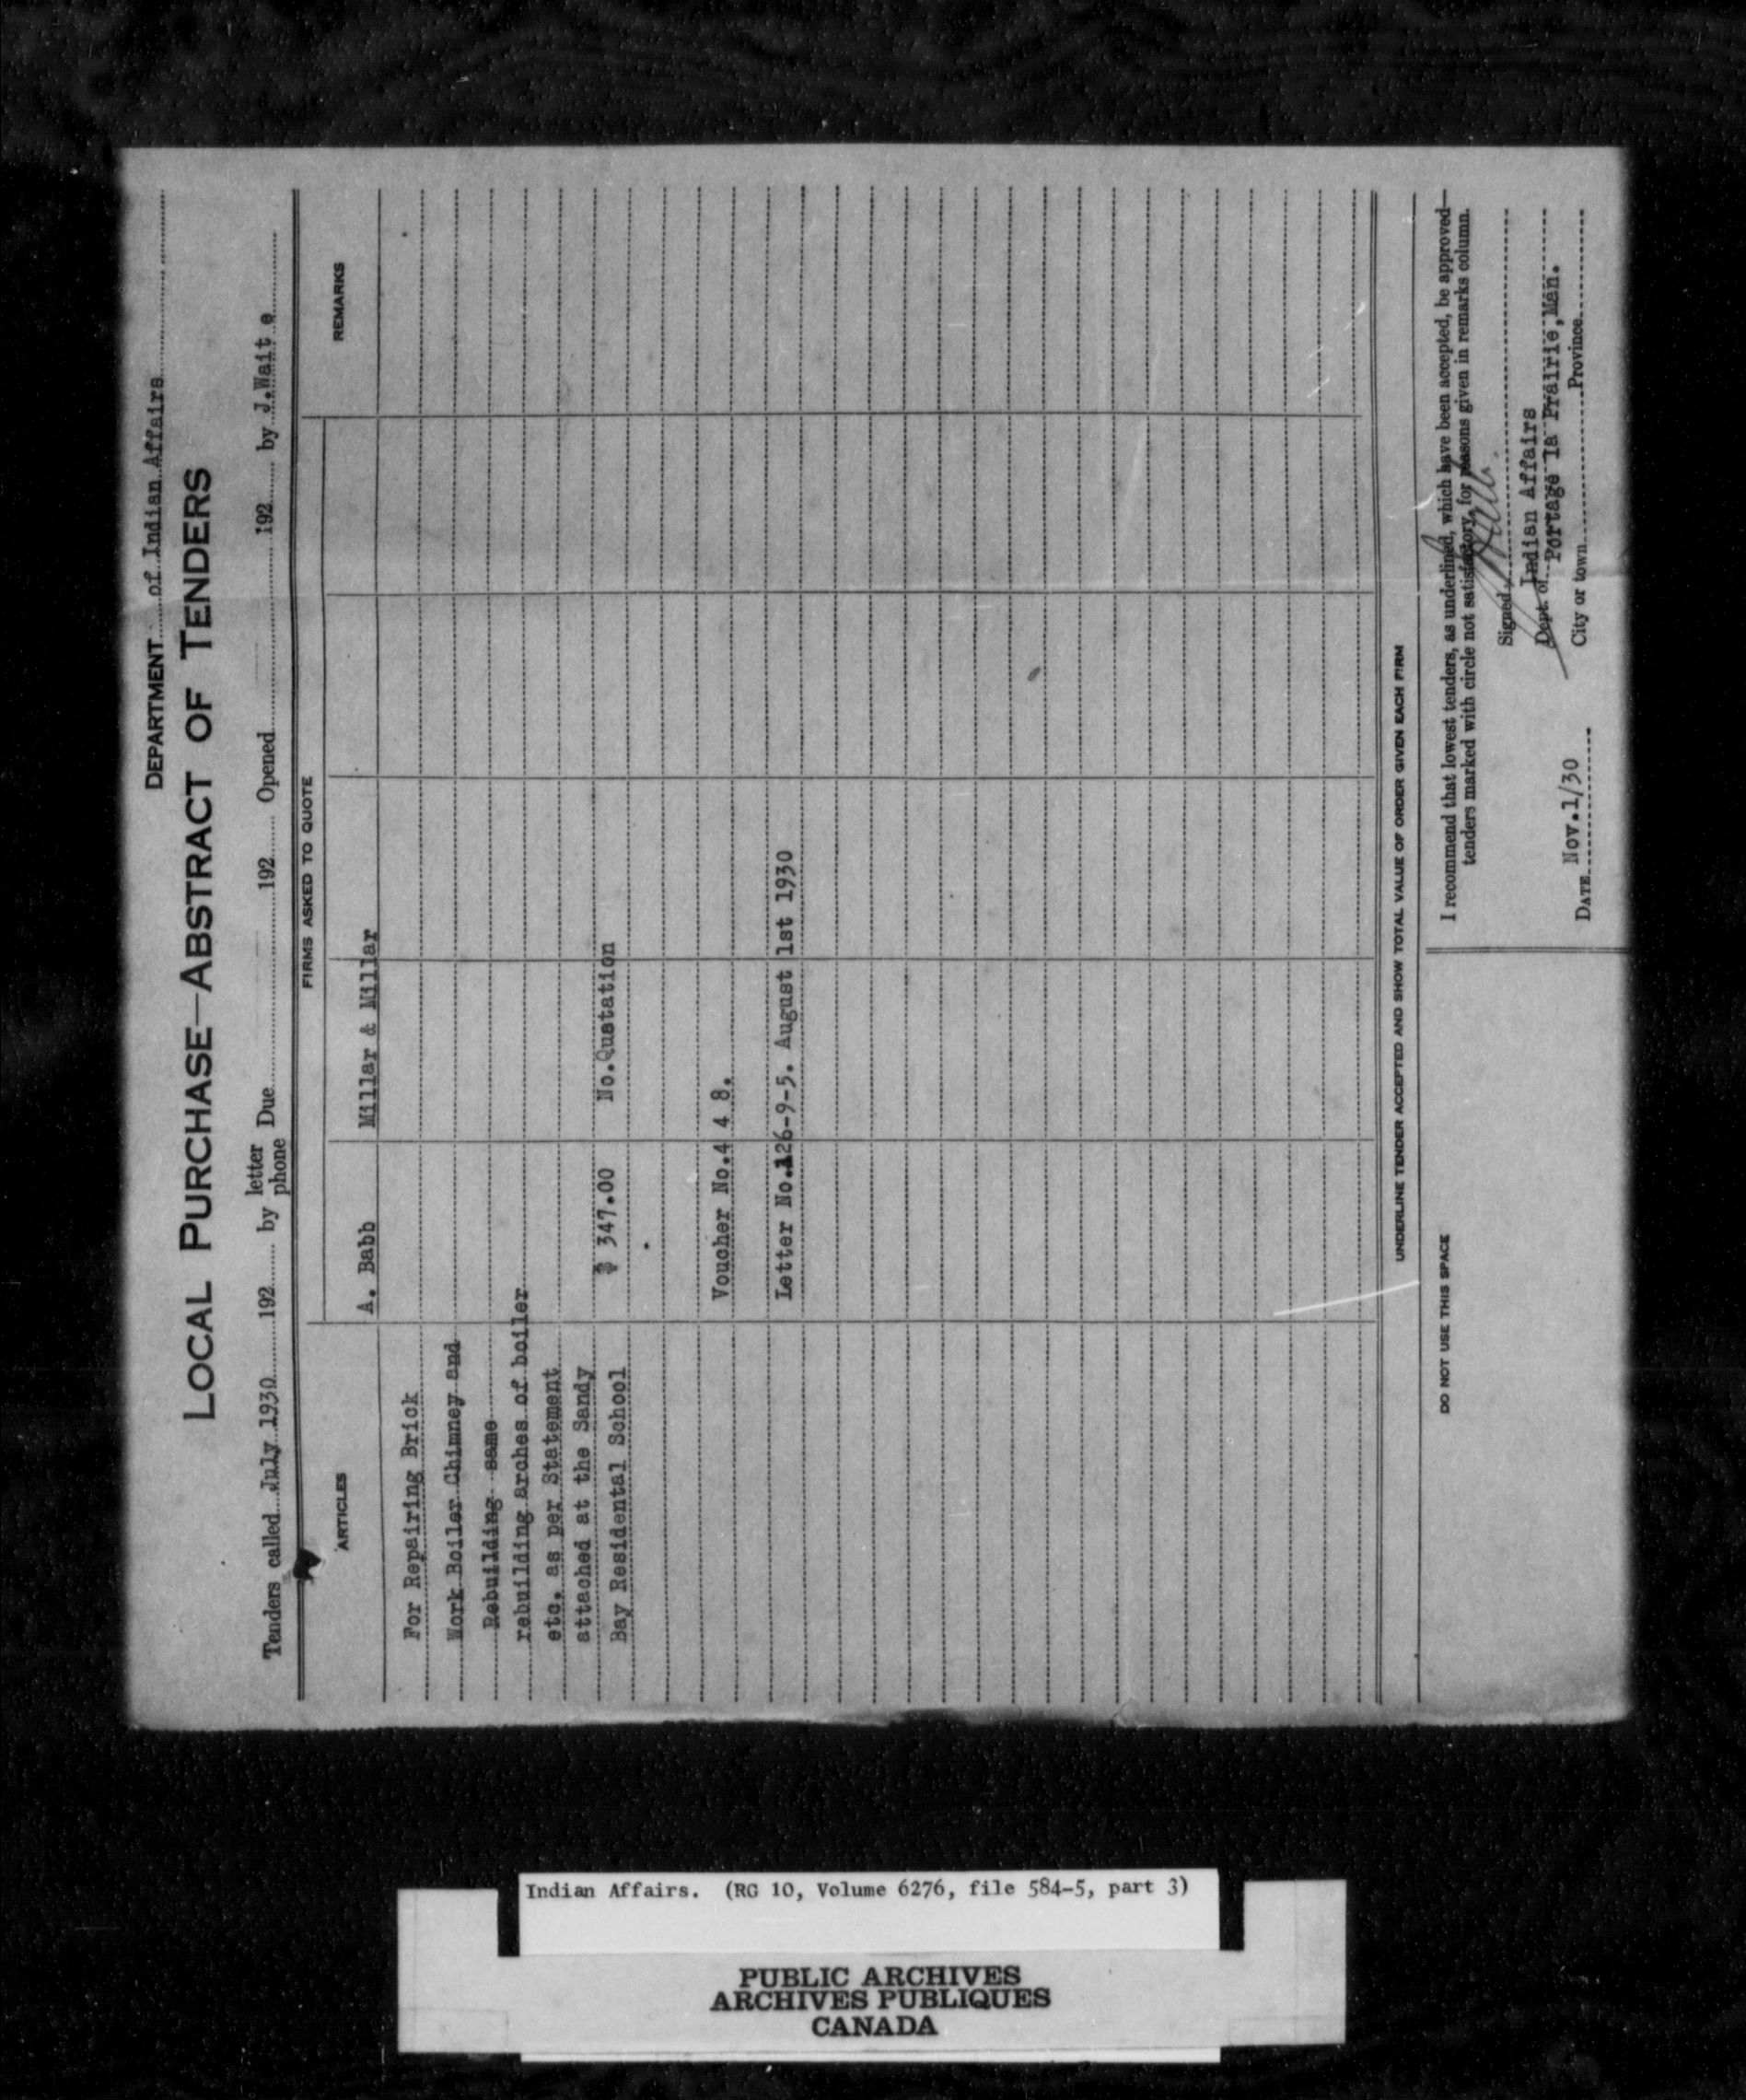 DEPARTMENT of Indian Affairs
LOCAL PURCHASE—ABSTRACT OF TENDERS
Tenders called July 1930 192 by letter phone Due 192 Opened 192 by J.Wait e
ARTICLES
FIRMS ASKED TO QUOTE
REMARKS
A. Babb Millar & Millar
For Repairing Brick
Work Boiler Chimney and
Rebuilding same
rebuilding arches of boiler
etc. as per Statement
attached at the Sandy $ 347.00 No.Quatation
Bay Residental School
Voucher No.4 4 8.
Letter No.126-9-5. August 1st 1930
UNDERLINE TENDER ACCEPTED AND SHOW TOTAL VALUE OF ORDER GIVEN EACH FIRM
DO NOT USE THIS SPACE
I recommend that lowest tenders, as underlined, which have been accepted, be approved—
tenders marked with circle not satisfactory, for reasons given in remarks column.
Signed
Indian Affairs
Dept. of
Portage la Prairie,Man.
DATE Nov.1/30
City or town Province
Indian Affairs. (RG 10, Volume 6276, file 584-5, part 3)
PUBLIC ARCHIVES
ARCHIVES PUBLIQUES
CANADA